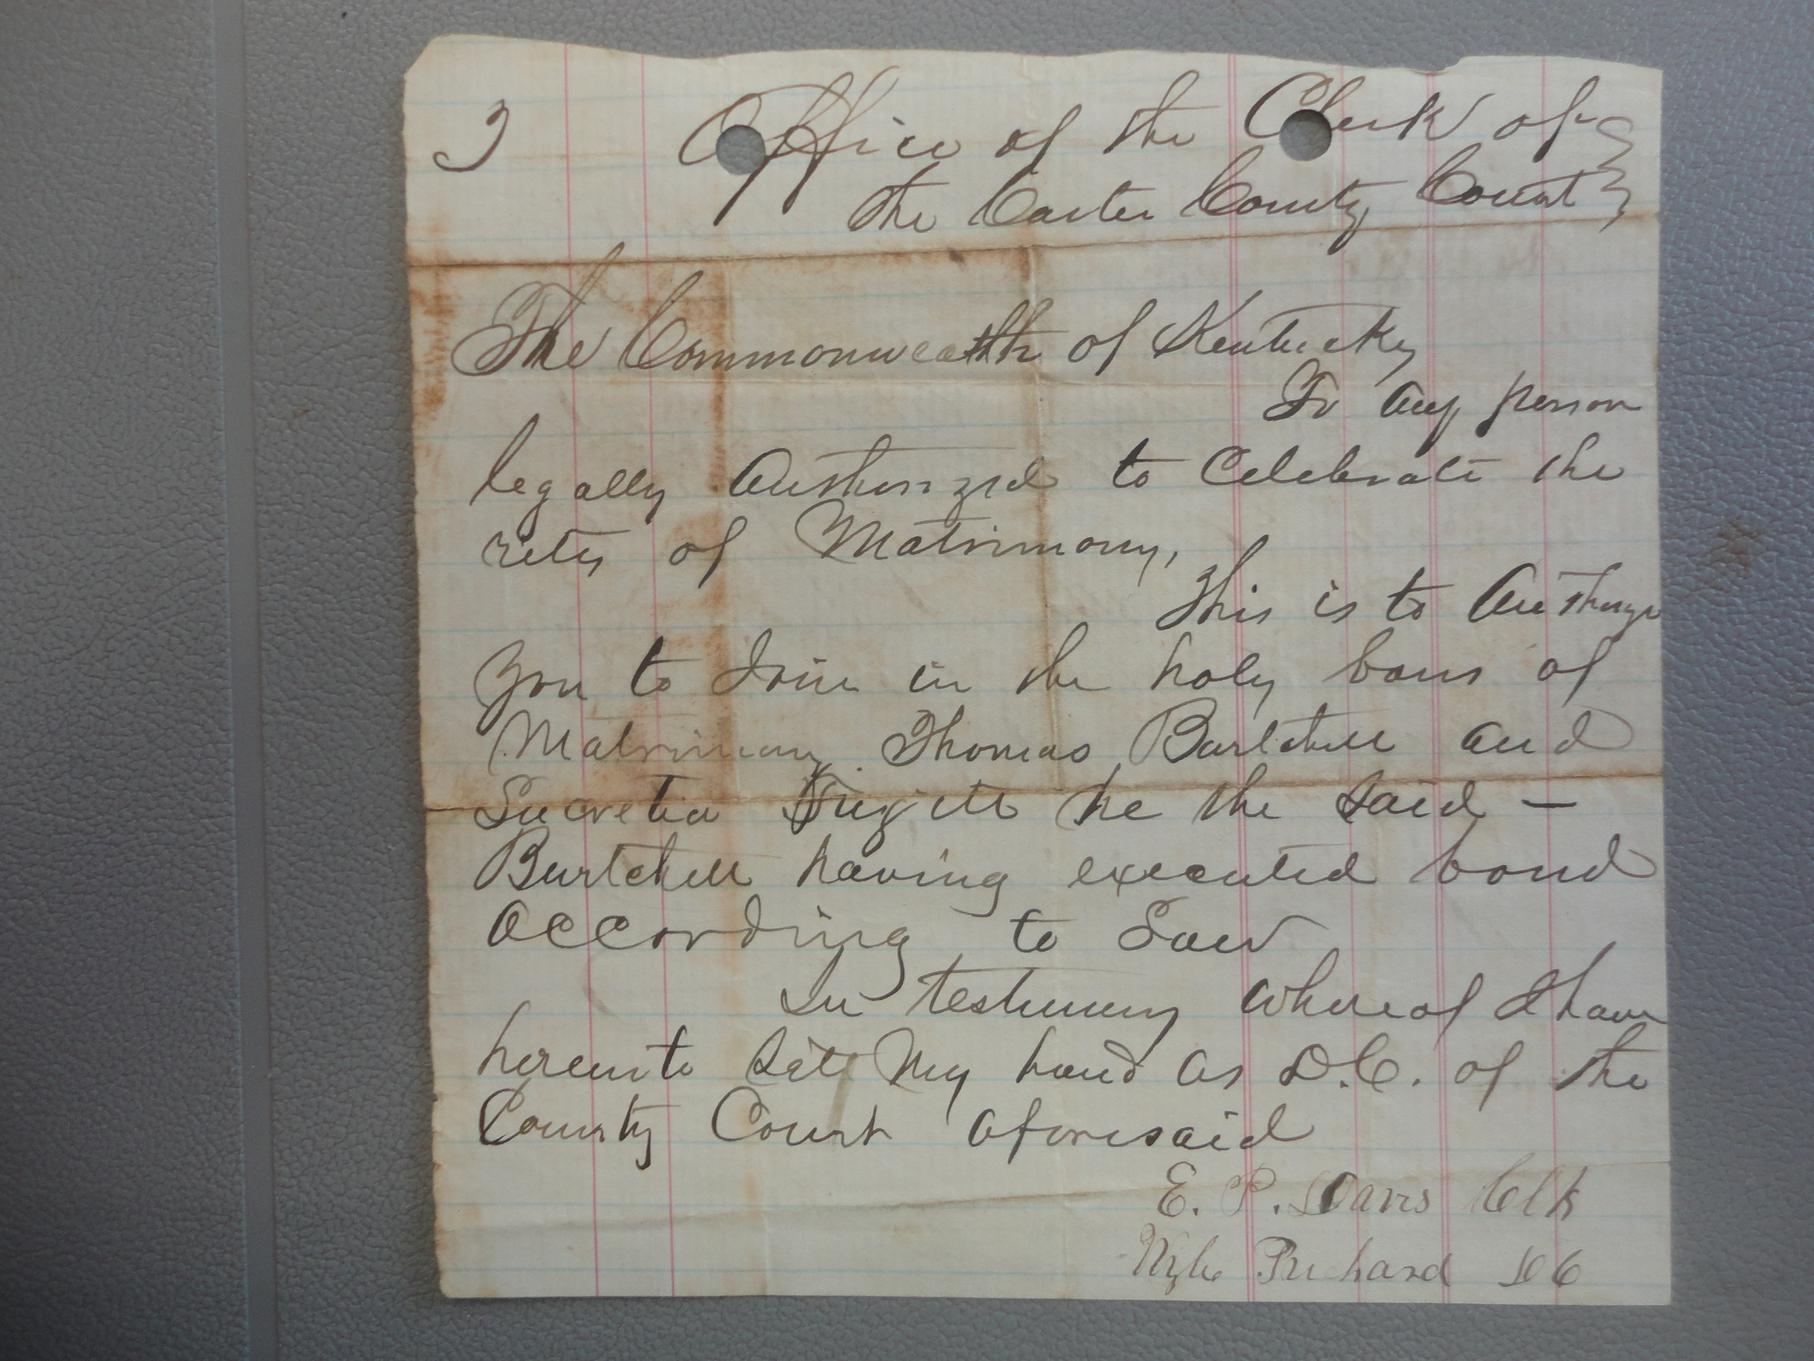 3 Office of the Clerk of
the Carter County Court
The Commonwealth of Kentucky
To any person
legally Authorized to Celebrate the
rites of Matrimony,
This is to Authorize
you to Join in the holy bans of
Matrimony Thomas Burtchell and
Lucretia he the said —
Burtchell having executed bond
According to Law
In testimony whereof I have
hereunto set My hand as D.C. of the
County Court aforesaid
E. P. Davis Clk
Prichard DC